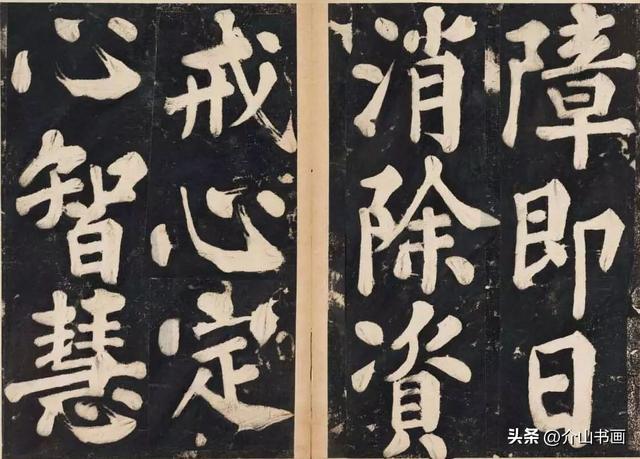 障即日
消除資
戒心定
心智慧
头条 @介山书画